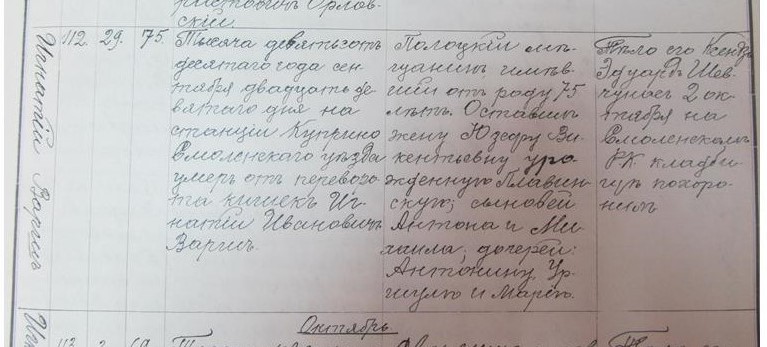 Орлов-
скій.
Игнатій Варгин
112. 29. 75.
Тысяча девятьсотъ
десятаго года сен-
тября двадцать де-
вятаго дня на
станціи Куприно
Смоленскаго уѣзда
умеръ отъ переворо-
та кишекъ Иг-
натій Ивановичъ
Варгин.
Полоцкій мѣ-
щанинъ имѣв-
шій отъ роду 75
лѣтъ. Оставилъ
жену Юзефу Ви-
кентьевну уро-
жденную Плавин-
скую; сыновей
Антона и Ми-
хаила; дочерей:
Антонину, Ур-
шулю и Марію.
Тѣло его Ксендзъ
Эдуардъ Шев-
чунас 2 ок-
тября на
Смоленскомъ
РК кладби-
щѣ похоро-
нилъ
Октябрь
113.